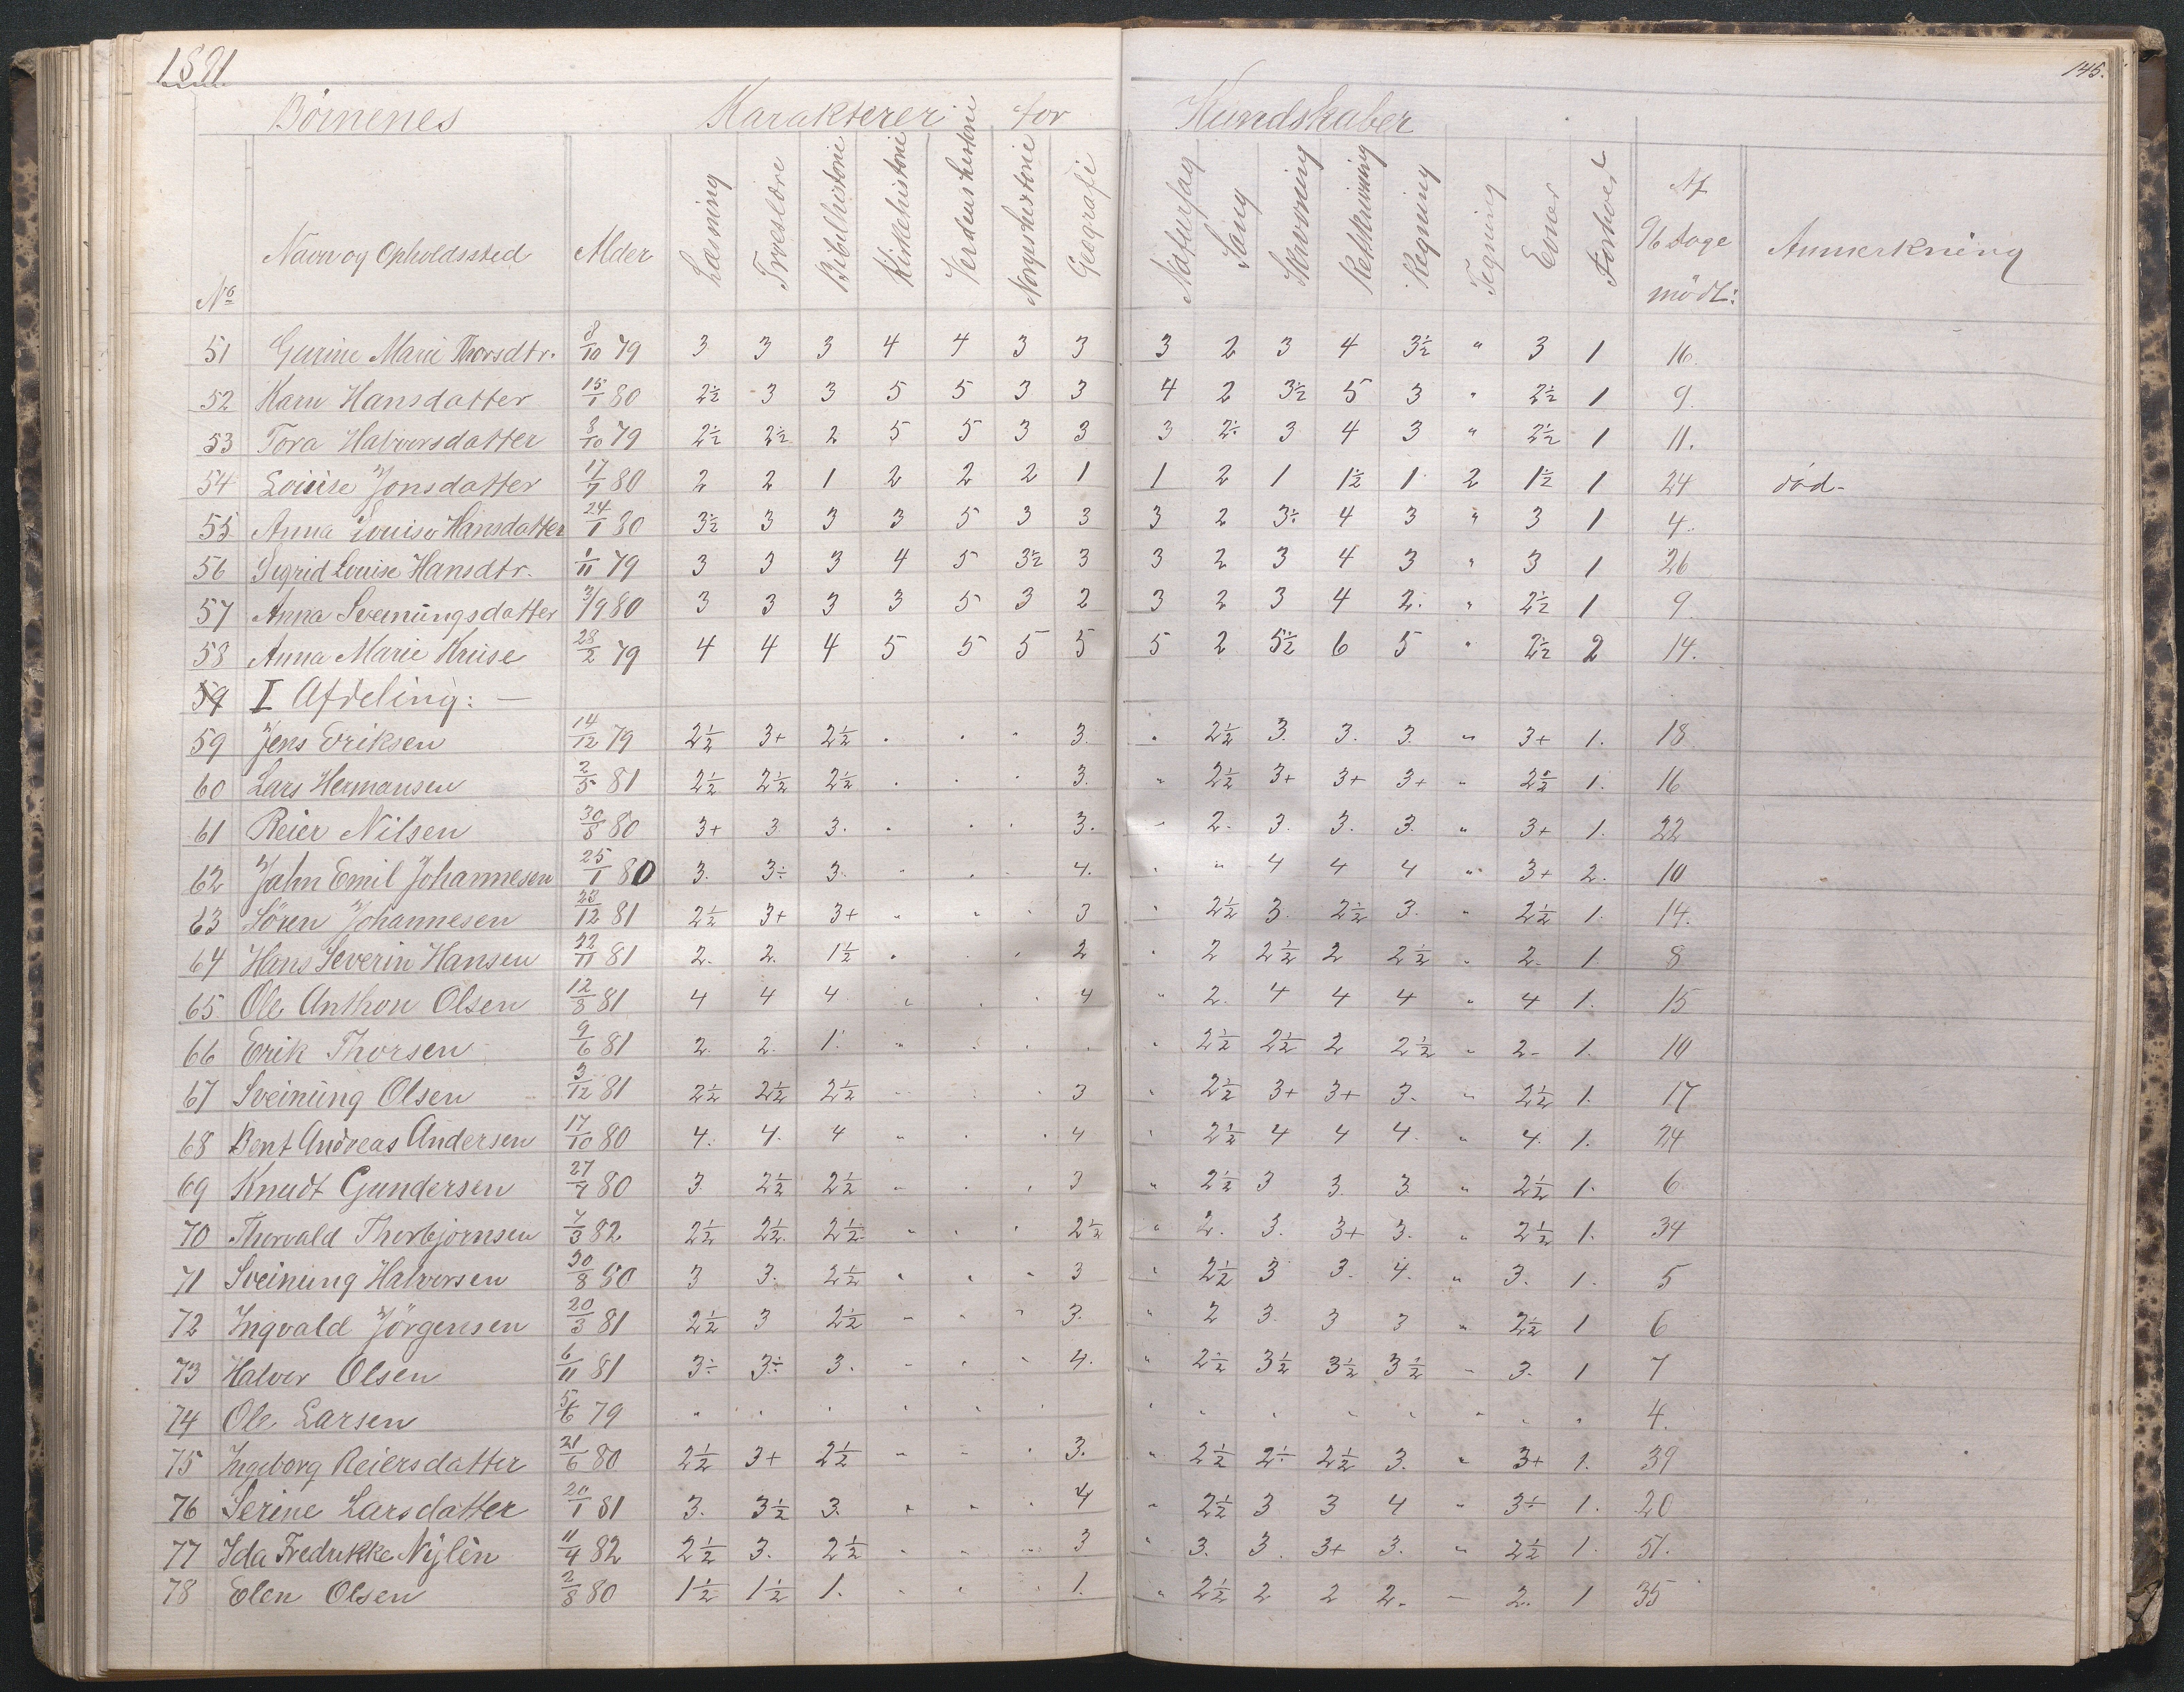 1891
145.
Börnenes Karakterer for Kundskaber
No Navn og Opholdssted Alder Læsning Troeslære Bibelhistorie Kirkehistorie Verdenshistorie Norgeshistorie Geografi Naturfag Sang Skrivning Retskrivning Regning Tegning Evner Forhold Af 96 dage mödt: Anmerkning
51 Gurine Marie Thorsdtr. 8/10 79 3 3 3 4 4 3 3 3 2 3 4 3½ " 3 1 16.
52 Karn Hansdatter 15/1 80 2½ 3 3 5 5 3 3 4 2 3½ 5 3 " 2½ 1 9.
53 Tora Halvorsdatter 8/10 79 2½ 2½ 2 5 5 3 3 3 2÷ 3 4 3 " 2½ 1 11.
54 Louise Jonsdatter 17/7 80 2 2 1 2 2 2 1 1 2 1 1½ 1 2 1½ 1 24 död-
55 Anna Louise Hansdatter 24/1 80 3½ 3 3 3 5 3 3 3 2 3÷ 4 3 " 3 1 4.
56 Sigrid Louise Hansdtr. 1/11 79 3 3 3 4 5 3½ 3 3 2 3 4 3 " 3 1 26
57 Anna Sveinungsdatter 3/9 80 3 3 3 3 5 3 2 3 2 3 4 2. " 2½ 1 9.
58 Anna Marie Kruse 28/2 79 4 4 4 5 5 5 5 5 2 5½ 6 5 " 2½ 2 14.
59 I Afdeling: —
59 Jens Eriksen 14/12 79 2½ 3+ 2½ . . . 3. " 2½ 3. 3. 3. " 3+ 1. 18
60 Lars Hermansen 2/5 81 2½ 2½ 2½ . . . 3. " 2½ 3+ 3+ 3+ " 2½ 1. 16
61 Reier Nilsen 30/8 80 3+ 3 3. . . . 3. " 2. 3. 3. 3. " 3+ 1. 22
62 Jahn Emil Johannesen 25/1 80 3. 3÷ 3. . . . 4. " " 4 4 4 " 3+ 2. 10
63 Sören Johannesen 23/12 81 2½ 3+ 3+ " " . 3 " 2½ 3. 2½ 3. " 2½ 1. 14.
64 Hans Severin Hansen 22/11 81 2. 2. 1½ . . . 2 " 2 2½ 2 2½ " 2. 1. 8
65 Ole Anthon Olsen 12/8 81 4 4 4 " . . 4 " 2. 4 4 4 " 4 1. 15
66 Erik Thorsen 9/6 81 2. 2. 1. " . . . " 2½ 2½ 2 2½ " 2- 1. 10
67 Sveinung Olsen 3/12 81 2½ 2½ 2½ " . . 3 " 2½ 3+ 3+ 3. " 2½ 1. 17
68 Bent Andreas Andersen 17/10 80 4. 4. 4 " . . 4 " 2½ 4 4 4. " 4. 1. 24
69 Knudt Gundersen 27/7 80 3 2½ 2½ " . . 3 " 2½ 3 3. 3. " 2½ 1. 6
70 Thorvald Thorbjørnsen 7/3 82 2½ 2½ 2½ " . . 2½ " 2. 3. 3+ 3. " 2½ 1. 34
71 Sveinung Halvorsen 30/8 80 3 3. 2½ " " " 3 " 2½ 3 3. 4. " 3. 1. 5
72 Ingvald Jörgensen 20/3 81 2½ 3 2½ " " " 3. " 2 3. 3 3 " 2½ 1 6
73 Halvor Olsen 6/11 81 3÷ 3÷ 3. " " " 4. " 2½ 3½ 3½ 3½ " 3. 1 7
74 Ole Larsen 5/6 79 " . . . . . " " " " " " " " 4.
75 Ingeborg Reiersdatter 21/6 80 2½ 3+ 2½ " " . 3. " 2½ 2÷ 2½ 3. " 3+ 1. 39
76 Serine Larsdatter 20/1 81 3. 3½ 3. " " . 4 " 2½ 3 3 4 " 3÷ 1. 20
77 Ida Fredrikke Nylèn 11/4 82 2½ 3. 2½ " " " 3 " 3. 3. 3+ 3. " 2½ 1. 51.
78 Elen Olsen 2/8 80 1½ 1½ 1. " " . 1. " 2½ 2 2 2. " 2. 1 35